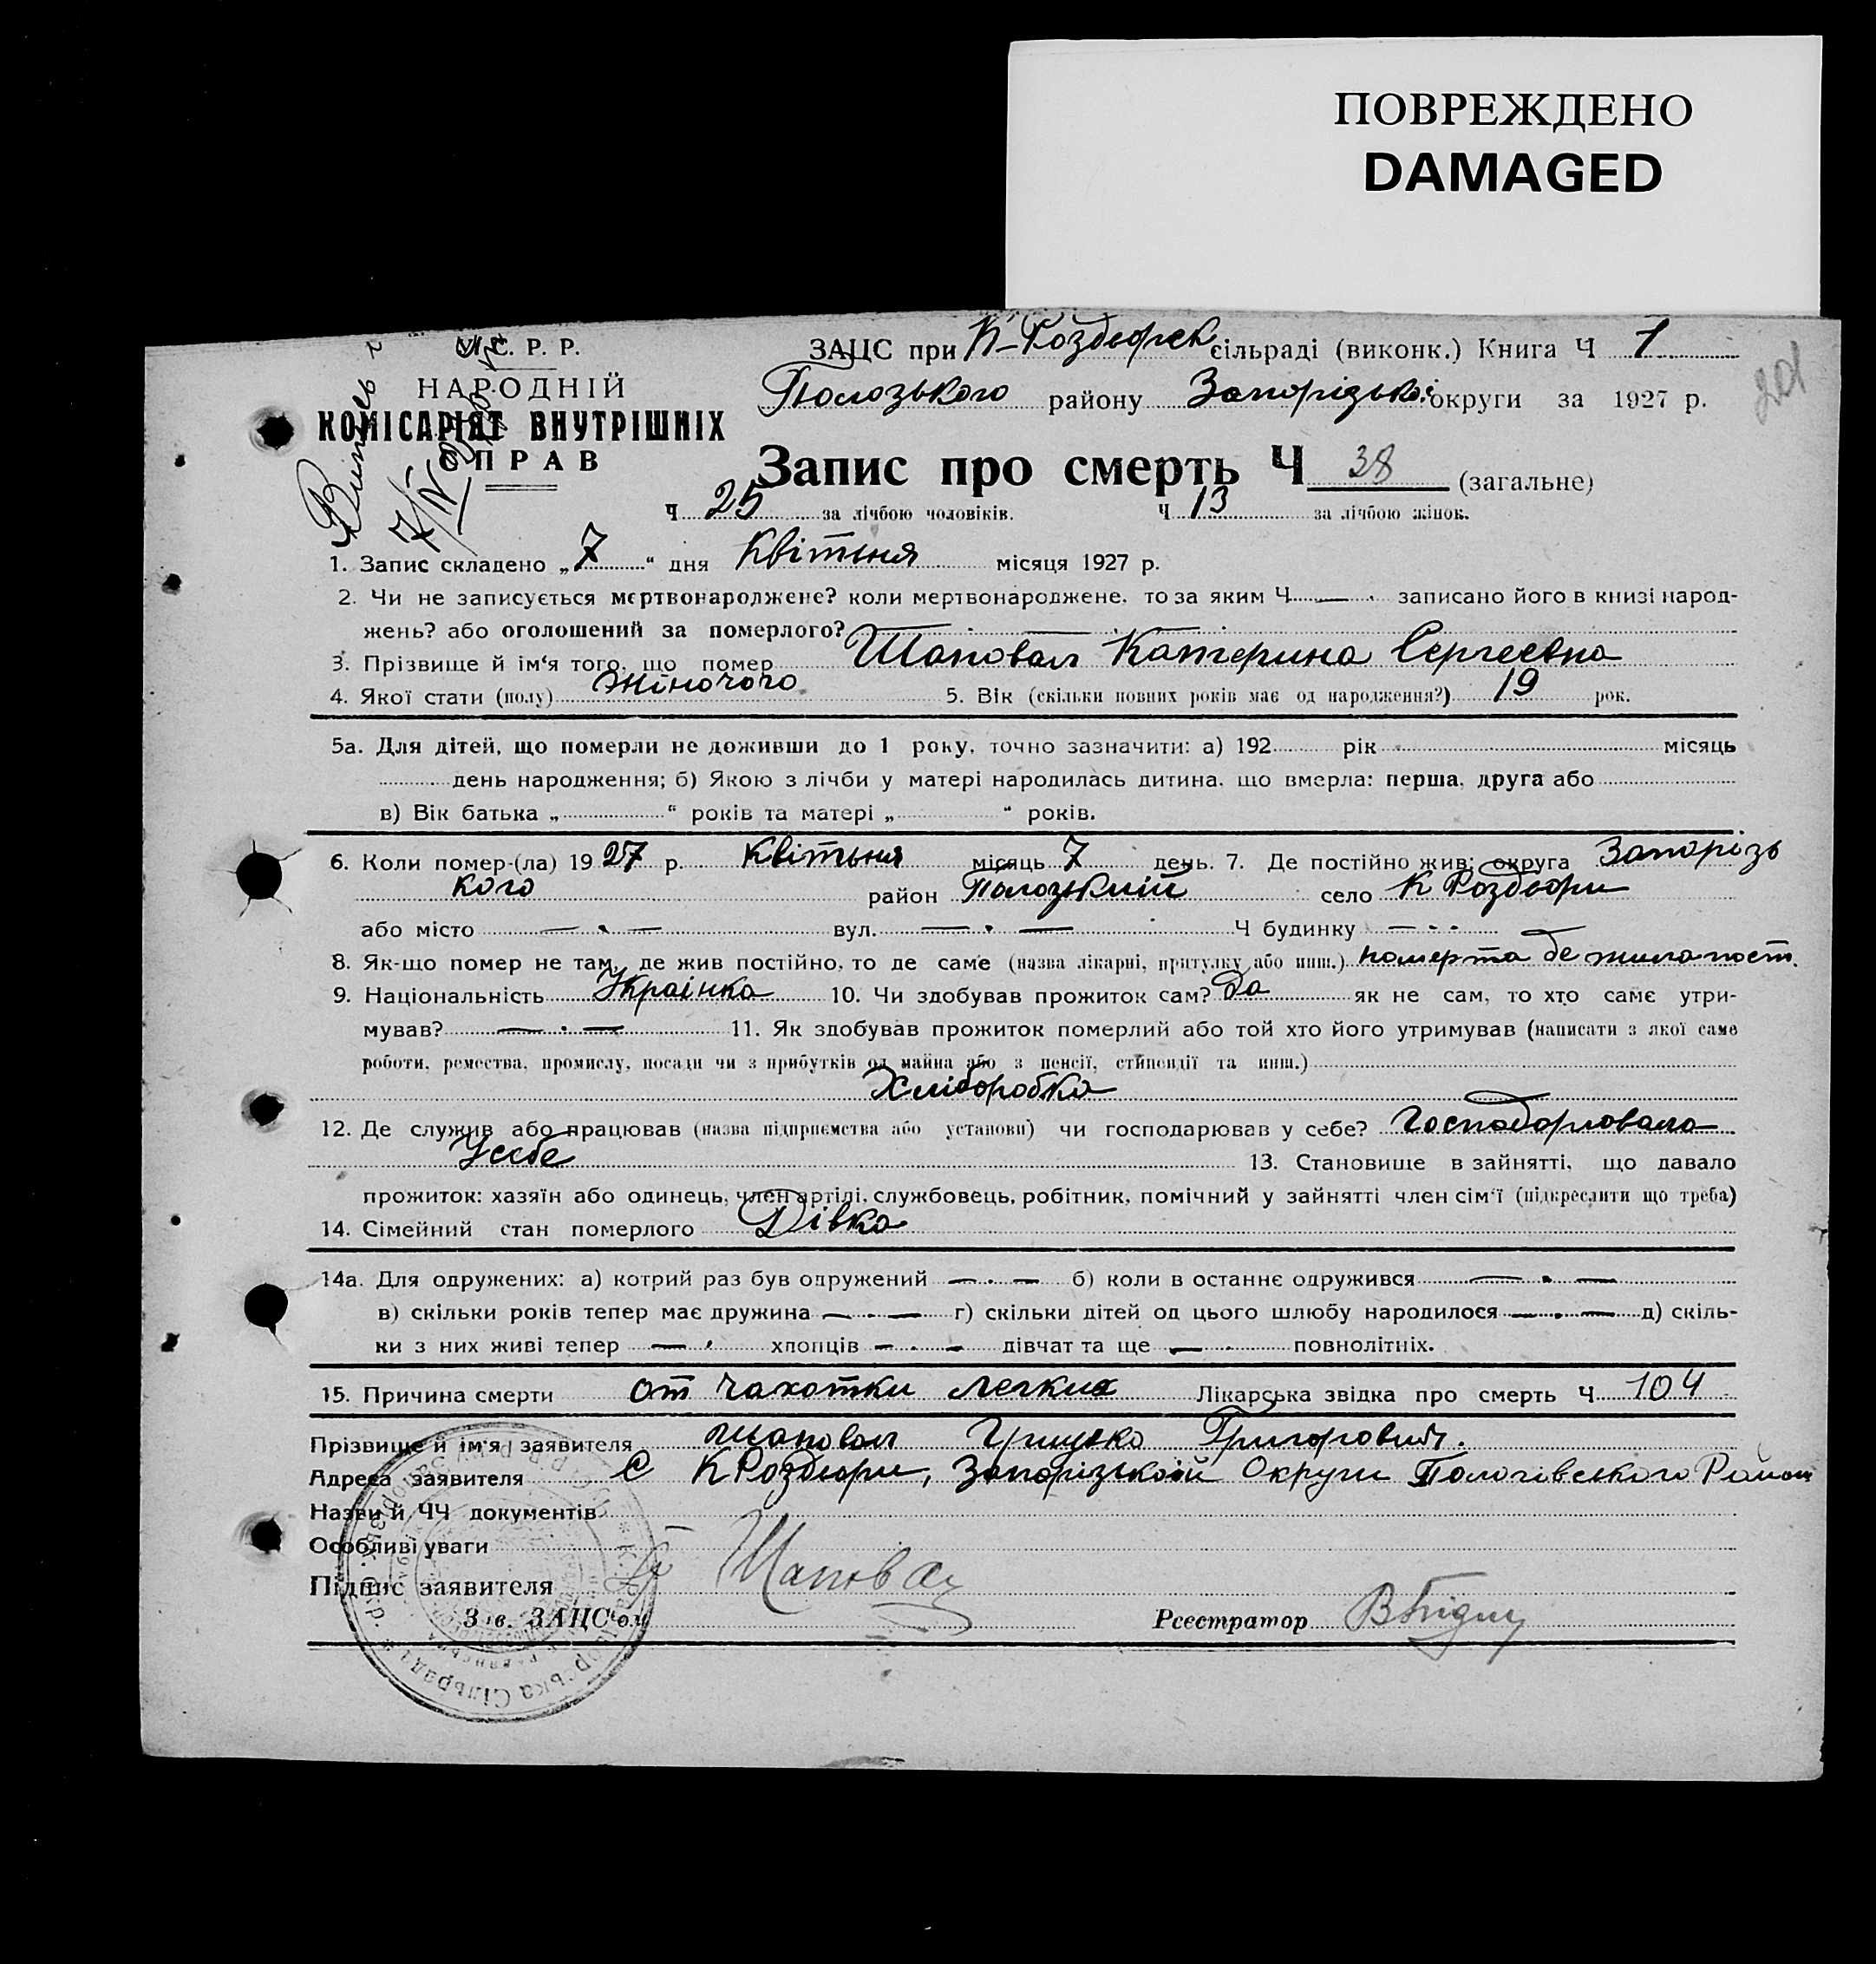 ПОВРЕЖДЕНО
DAMAGED
У. С. Р. Р.
НАРОДНІЙ
КОМІСАРІЯТ ВНУТРІШНІХ
СПРАВ
Витесь
ЗАЦС при К-Роздорск сільраді (виконк.) Книга Ч 1
201
Полозького району Запорізької округи за 1927 р.
Запис про смерть Ч 38 (загальне)
Ч 25 за лічбою чоловіків. Ч 13 за лічбою жінок.
1. Запис складено „7“ дня Квітьня місяця 1927 р.
2. Чи не записується мертвонароджене? коли мертвонароджене, то за яким Ч — . записано його в книзі народ-
жень? або оголошений за померлого?
3. Прізвище й ім‘я того, що помер Шаповал Катерина Сергеевна
4. Якої стати (полу) Жіночого 5. Вік (скільки повних років має од народження?) 19 рок.
5а. Для дітей, що померли не доживши до 1 року, точно зазначити: а) 192 рік місяць
день народження; б) Якою з лічби у матері народилась дитина, що вмерла: перша, друга або
в) Вік батька „ “ років та матері „ “ років.
6. Коли помер-(ла) 1927 р. Квітьня місяць 7 день. 7. Де постійно жив: округа Запорізь
кого район Полозький село К Роздори
або місто — . — вул. — . — Ч будинку — . .
8. Як-що помер не там, де жив постійно, то де саме (назва лікарні, притулку або инш.) померла де жила пост.
9. Національність Українка 10. Чи здобував прожиток сам? Да як не сам, то хто саме утри-
мував? — . — 11. Як здобував прожиток померлий або той хто його утримував (написати з якої саме
роботи, ремества, промислу, посади чи з прибутків од майна або з пенсії, стипендії та инш.)
Хліборобка
12. Де служив або працював (назва підприємства або установи) чи господарював у себе? Господорювала
Усебе 13. Становище в зайнятті, що давало
прожиток: хазяїн або одинець, член артілі, службовець, робітник, помічний у зайнятті член сім‘ї (підкреслити що треба)
14. Сімейний стан померлого Дівка
14а. Для одружених: а) котрий раз був одружений — . — б) коли в останнє одружився — . —
в) скільки років тепер має дружина — . — г) скільки дітей од цього шлюбу народилося — . — д) скіль-
ки з них живі тепер — . хлопців — . — дівчат та ще — . повнолітніх.
15. Причина смерти от чахотки легких Лікарська звідка про смерть Ч 104
Прізвище й ім‘я заявителя Шаповал Грицько Григорович.
Адреса заявителя С К Роздори, Запорізькоій Округи Пологівського Район
Назви й ЧЧ документів
Особливі уваги
Підпис заявителя Шаповал
Зав. ЗАЦС‘ом Реєстратор